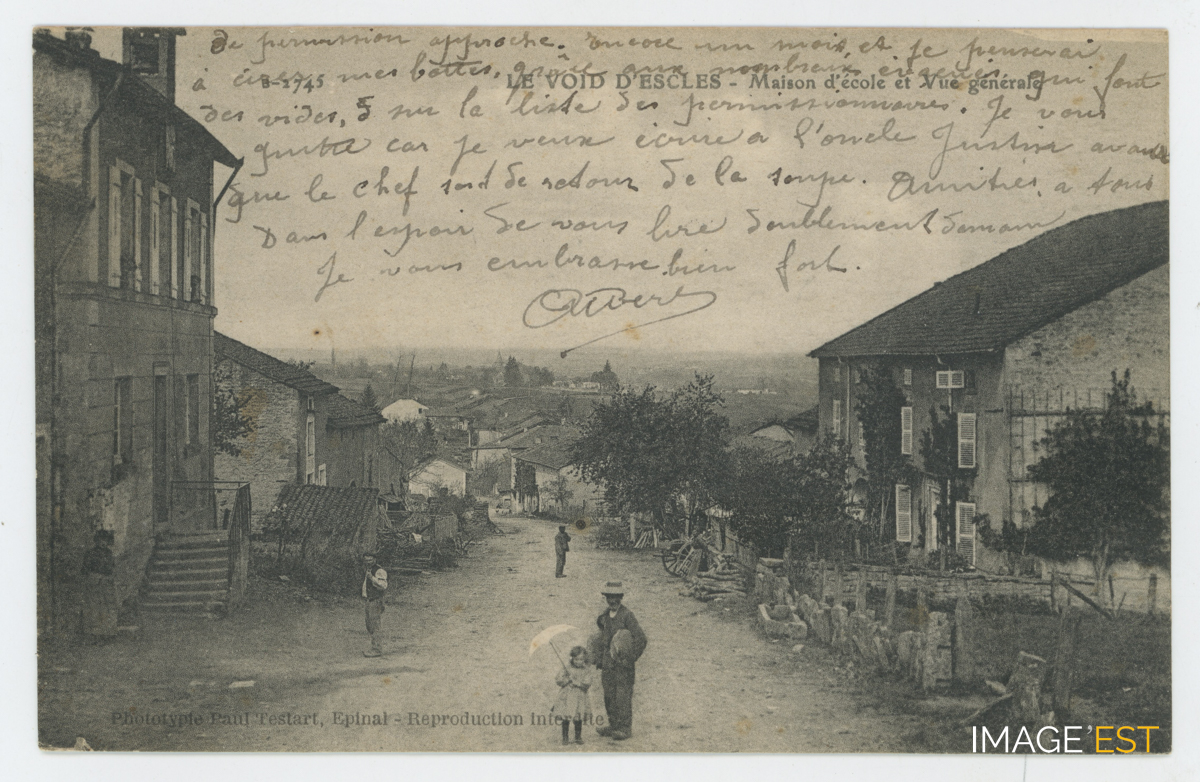 de permission approche. Encore un mois et je penserai
à cirer mes bottes, grâce aux nombreux évacués qui font
8-1745 LE VOID D'ESCLES - Maison d'école et Vue générale
des vides, 5 sur la liste des permissionnaires. Je vous
quitte car je veux écrire à l'oncle Justin avant
que le chef soit de retour de la soupe. Amitiés à tous
Dans l'espoir de vous lire doublement demain
Je vous embrasse bien fort.
Albert
Phototypie Paul Testart, Epinal - Reproduction interdite
IMAGE'EST